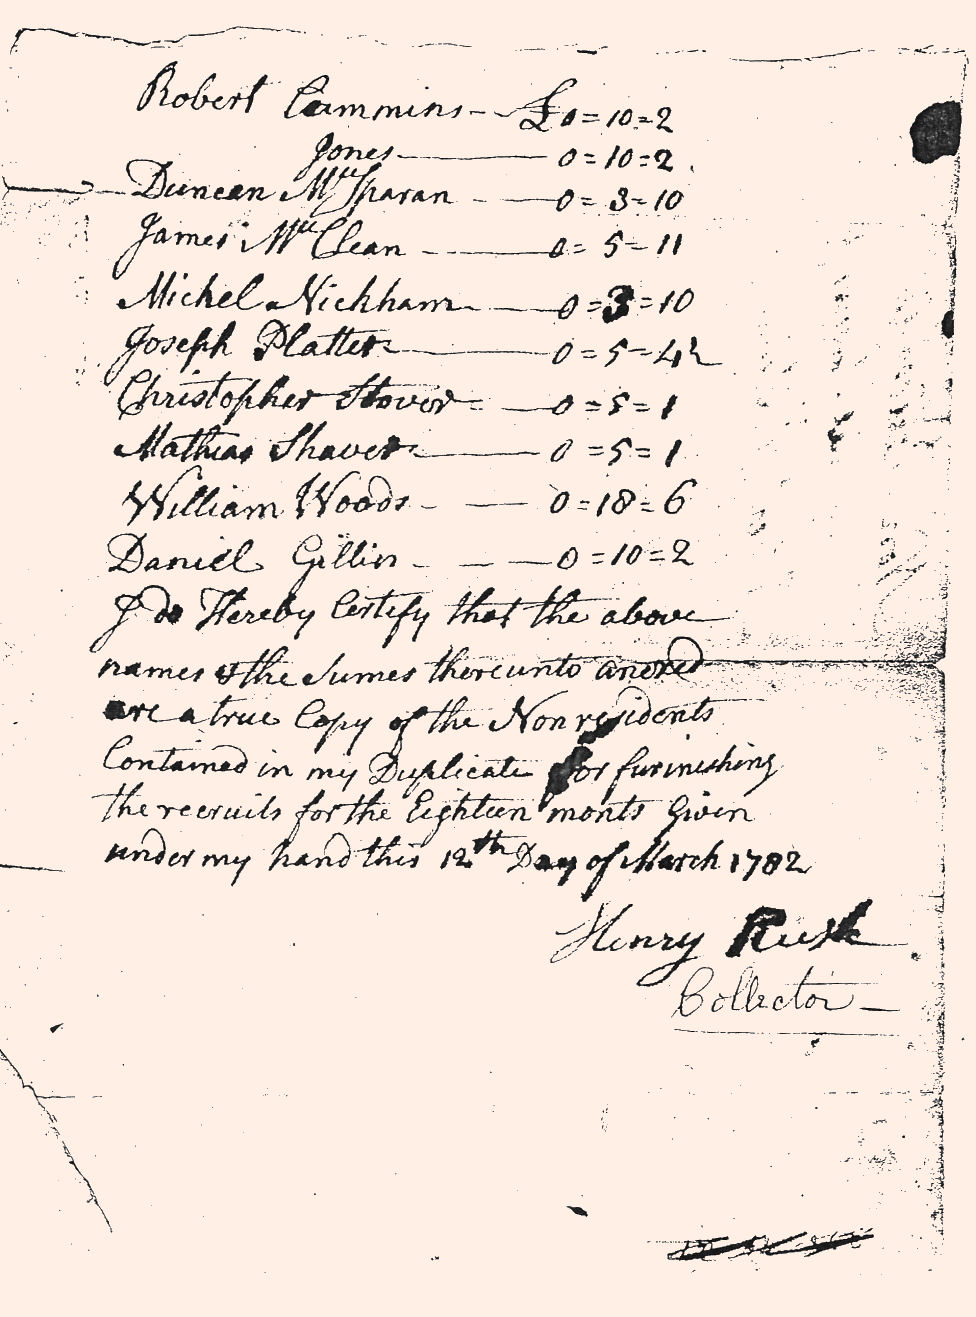 Robert Cammins - - £0=10=2
Jones - 0=10=2
Duncan McSparan - - 0=3=10
James McClean - 0=5=11
Michel Nickham - 0=3=10
Joseph Platter - 0=5=4½
Christopher Stover - 0=5=1
Mathias Shaver - 0=5=1
William Woods - - 0=18=6
Daniel Gillin - - - 0=10=2
I do Hereby Certify that the above
names & the Sumes thereunto anexed
are a true Copy of the Non residents
Contained in my Duplicate for furinishing
the recruits for the Eighteen monts Givin
under my hand this 12th Day of March 1782
Henry Rusk
Collector -